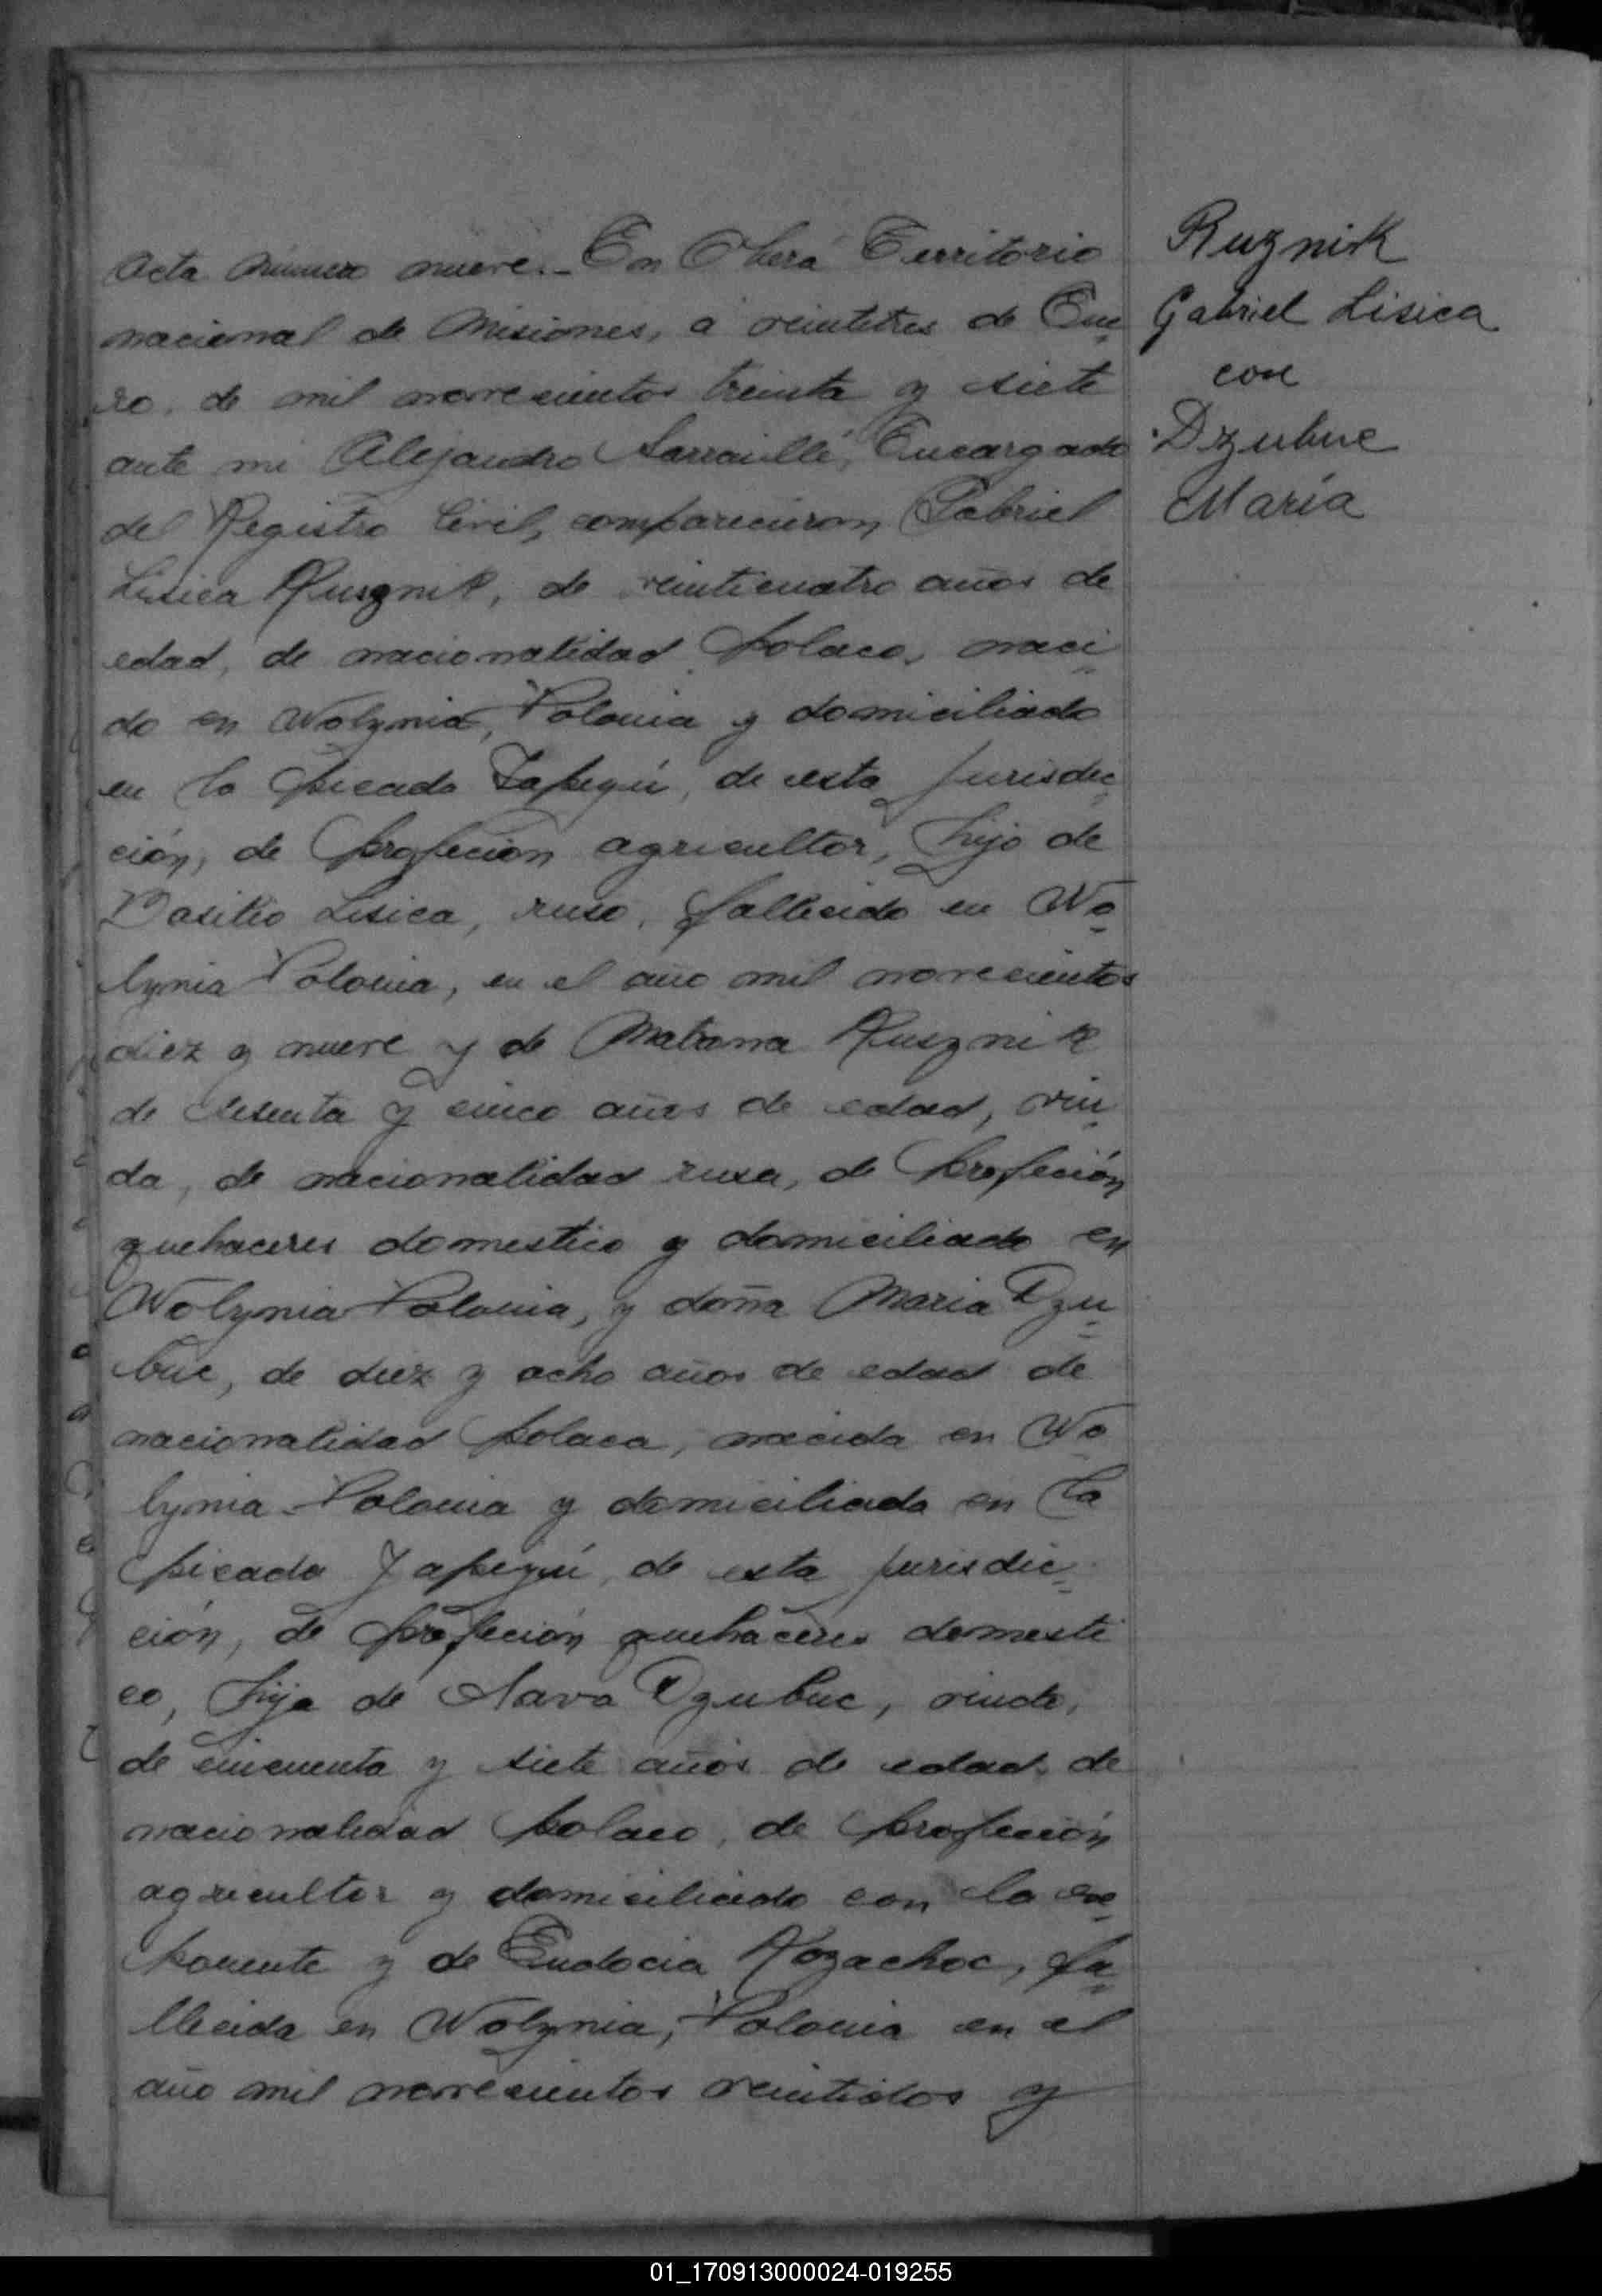 Acta número nueve.- En Oberá Territorio
nacional de Misiones, a veintitres de Ene
ro, de mil novecientos treinta y siete
ante mi Alejandro Sarraillé, Encargado
del Registro Civil, comparecieron, Gabriel
Lisica Rusznik, de veinticuatro años de
edad, de nacionalidad polaco, naci
do en Wolynia, Polonia y domiciliado
en la picada Yapeyú, de esta jurisdic
ción, de profeción agricultor, hijo de
Basilio Lisica, ruso, fallecido en Wo
lynia Polonia, en el año mil novecientos
diez y nueve y de Matrona Rusznik
de sesenta y cinco años de edad, viu
da, de nacionalidad rusa, de profeción
quehaceres domestico y domiciliado en
Wolynia Polonia, y doña Maria Dzu
buc, de diez y ocho años de edad de
nacionalidad polaca, nacida en Wo
lynia-Polonia y domiciliada en la
picada Yapeyú, de esta jurisdic
ción, de profeción quehaceres domesti
co, hija de Sava Dzubuc, viudo,
de cincuenta y siete años de edad, de
nacionalidad polaco, de profeción
agricultor y domiciliado con la ex
ponente y de Eudocia Kozachoc, fa
llecida en Wolynia, Polonia en el
año mil novecientos veintidos y
Ruznik
Gabriel Lisica
con
Dzubuc
María
01_170913000024-019255